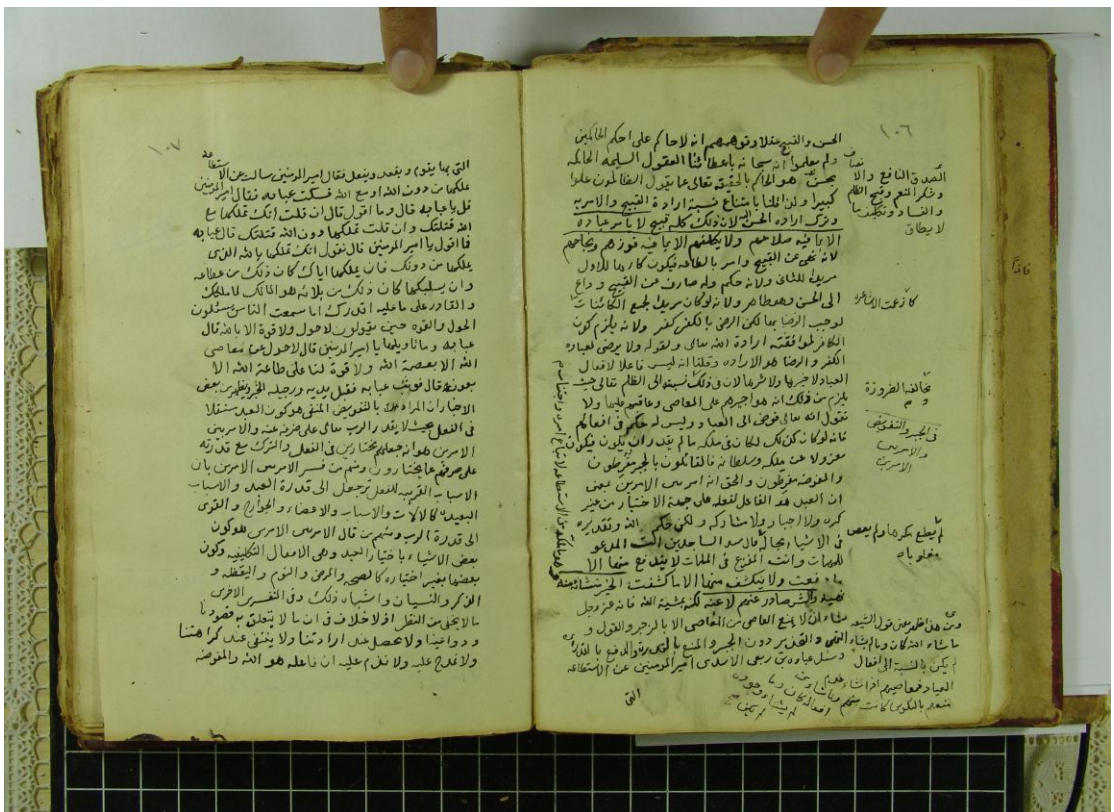 ١٠٦
الحسن والقبح عقلا وتوهمهم انه لا حاكم على احكم الحاكمين
ولم يعلموا انه سبحانه باعطائنا العقول السليمة الحاكمه
بحسن هو الحاكم بالحقيقة تعالى عما يقول الظالمون علوا
كبيرا ولن قلنا بامتناع نسبة ارادة القبيح والامر به
وترك ارادة الحسن اليه لان ذلك كله قبيح لا يامر عباده
الا بما فيه صلاحهم ولا يكلفهم الا بما فيه فوزهم ونجاحهم
لانه نهى عن القبيح وامر بالطاعه فيكون كارها للاول
مريدا للثانى ولانه حكيم وله صارف عن القبيح وداع
الى الحسن وهو ظاهر ولانه لو كان مريدا لجميع الكائنات
لوجب الرضا بها لكن الرضى بالكفر كفر ولانه يلزم كون
الكافر لموافقته ارادة الله تعالى ولقوله ولا يرضى لعباده
الكفر والرضا هو الاراده وقلنا انه ليس فاعلا لافعال
العباد لا خيرها ولا شرها لان فى ذلك نسبته الى الظلم تعالى حيث
يلزم من ذلك انه هو اجبرهم على المعاصى وعاقبهم عليها ولا
نقول انه تعالى فوض الى العباد وليس له حكم فى افعالهم
فانه لو كان كذلك لكان فى ملكه ما لم يقدر ان يكون فيكون
معزولا عن ملكه وسلطانه فالقائلون بالجبر مفرطون
والمفوضه مفرطون والحق انه امر بين الامرين بمعنى
ان العبد هو الفاعل لفعله على جهة الاختيار من غير
كره ولا اجبار ولا مشاركه ولكن حكم الله وتقديره
فى الاشياء بحاله قال سيد الساجدين انت المدعو
للمهمات وانت المفزع فى الملمات لا يندفع منها الا
ما دفعت ولا ينكشف منها الا ما كشفت
صادر عنهم لا عنه لكنه بمشية الله فانه عز وجل
شاء ان لا يمنع العاصى من المعاصى الا بالزجر والقول و
النهى والتحذير دون الجبر والمنع بالقهر والدفع بالقدره
وسئل عبايه بن ربعى الاسدى امير المؤمنين عن الاستطاعه
التى
الصدق النافع والا
وشكر المنعم وقبح الظلم
والفساد وتكليف ما
لا يطاق
فاذا
كما زعمت الاشاعره
مخالفه لضرورة
فى الجبر والتفويض
والامر بين
الامرين
لم يطع بكره ولم يعص
مغلوبا
ما شاء الله كان وما لم يشاء
لم يكن بالنسبة الى افعال
العباد
١٠٧
التى بها يقوم ويقعد ويفعل فقال امير المؤمنين سالت عن الاستطاعة
تملكها من دون الله او مع الله فسكت عبايه فقال امير المؤمنين
قل يا عبايه قال وما اقول قال ان قلت انك تملكها مع
الله قتلتك وان قلت تملكها دون الله قتلتك قال عبايه
فما اقول يا امير المؤمنين قال تقول انك تملكها بالله الذى
يملكها من دونك فان يملكها اياك كان ذلك من عطائه
وان يسلبكها كان ذلك من بلائه هو المالك لما ملكك
والقادر على ما عليه اقدرك اما سمعت الناس يسئلون
الحول والقوه حين يقولون لا حول ولا قوة الا بالله قال
عبايه وما تاويلها يا امير المؤمنين قال لا حول عن معاصى
الله الا بعصمة الله ولا قوة لنا على طاعة الله الا
بعون الله قال فوثب عبايه فقبل يديه ورجليه الخبر ويظهر من بعض
الاخبار ان المراد بالتفويض المنفى هو كون العبد مستقلا
فى الفعل بحيث لا يقدر الرب تعالى على صرفه عنه والامر بين
الامرين هو انه جعلهم مختارين فى الفعل والترك مع قدرته
على صرفهم عما يختارون ومنهم من فسر الامر بين الامرين بان
الاسباب القريبه للفعل ترجعل الى قدرة العبد والاسباب
البعيده كالالات والاسباب والاعضاء والجوارح والقوى
الى قدرة الرب ومنهم من قال الامر بين الامرين هو كون
بعض الاشياء باختيار العبد وهى الافعال التكليفيه وكون
بعضها بغير اختياره كالصحه والمرض والنوم واليقظه و
الذكر والنسيان واشباه ذلك وفى التفسير الاخرى
ما لا يخفى من النظر اذ لا خلاف فى ان ما لا يتعلق به قصودنا
ودواعينا ولا يحصل عند ارادتنا ولا ينتفى عند كراهتنا
ولا نمدح عليه ولا نذم عليه ان فاعله هو الله والمفوضه